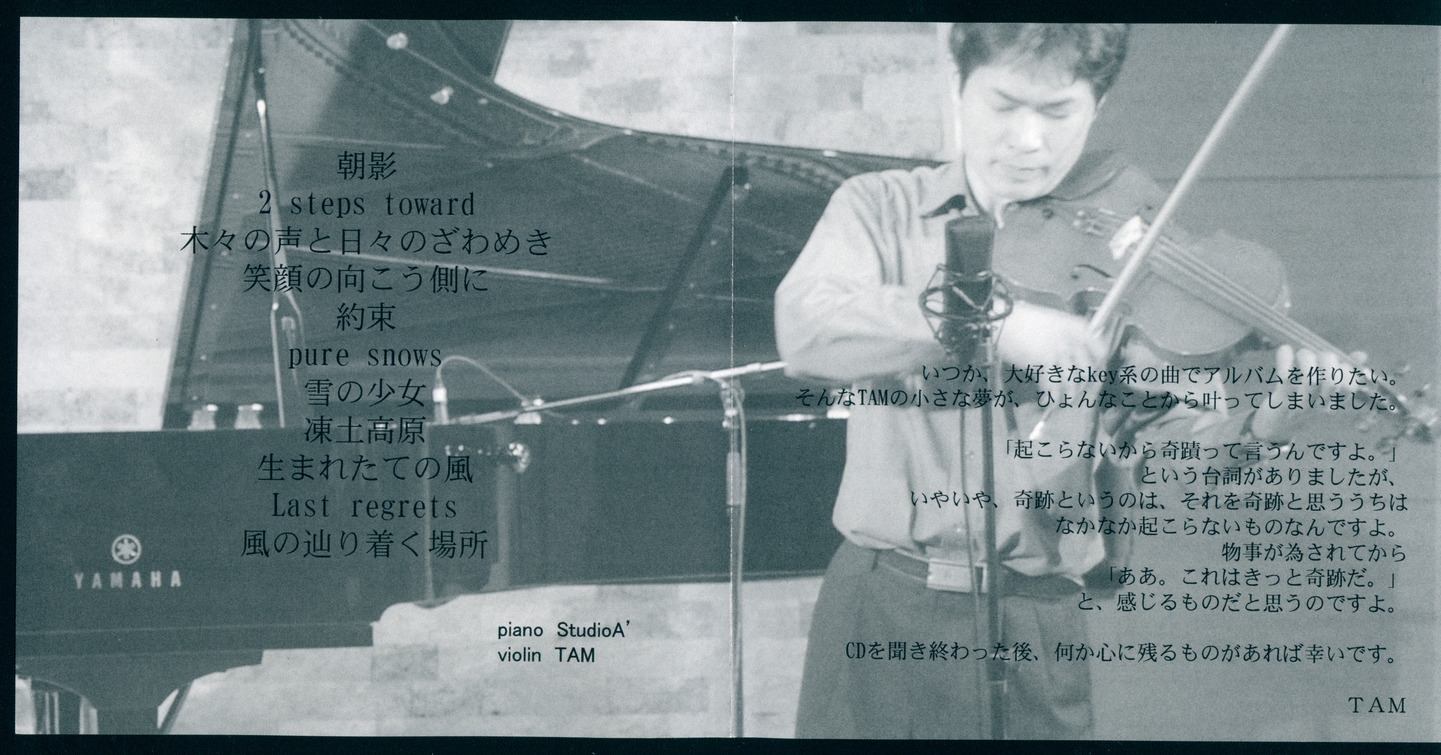 朝影
2 steps toward
木々の声と日々のざわめき
笑顔の向こう側に
約束
pure snows
雪の少女
凍土高原
生まれたての風
Last regrets
風の辿り着く場所
YAMAHA
piano StudioA’
violin TAM
いつか、大好きなkey系の曲でアルバムを作りたい。
そんなTAMの小さな夢が、ひょんなことから叶ってしまいました。
「起こらないから奇蹟って言うんですよ。」
という台詞がありましたが、
いやいや、奇跡というのは、それを奇跡と思ううちは
なかなか起こらないものなんですよ。
物事が為されてから
「ああ。これはきっと奇跡だ。」
と、感じるものだと思うのですよ。
CDを聞き終わった後、何か心に残るものがあれば幸いです。
TAM